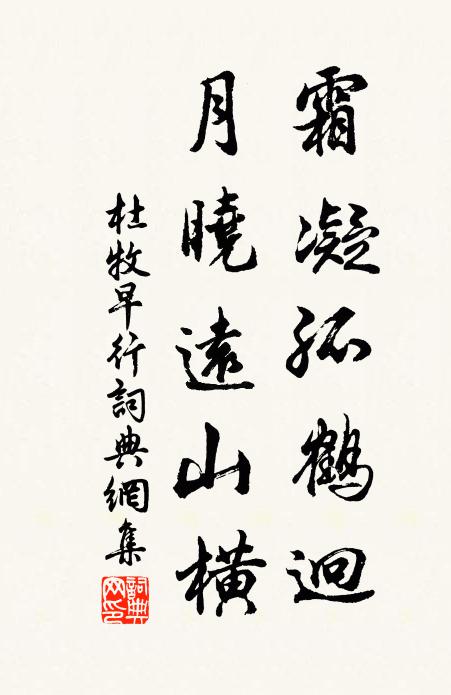 霜凝孤鶴迥
月曉遠山橫
杜牧早行詞典網集
詞典
网印